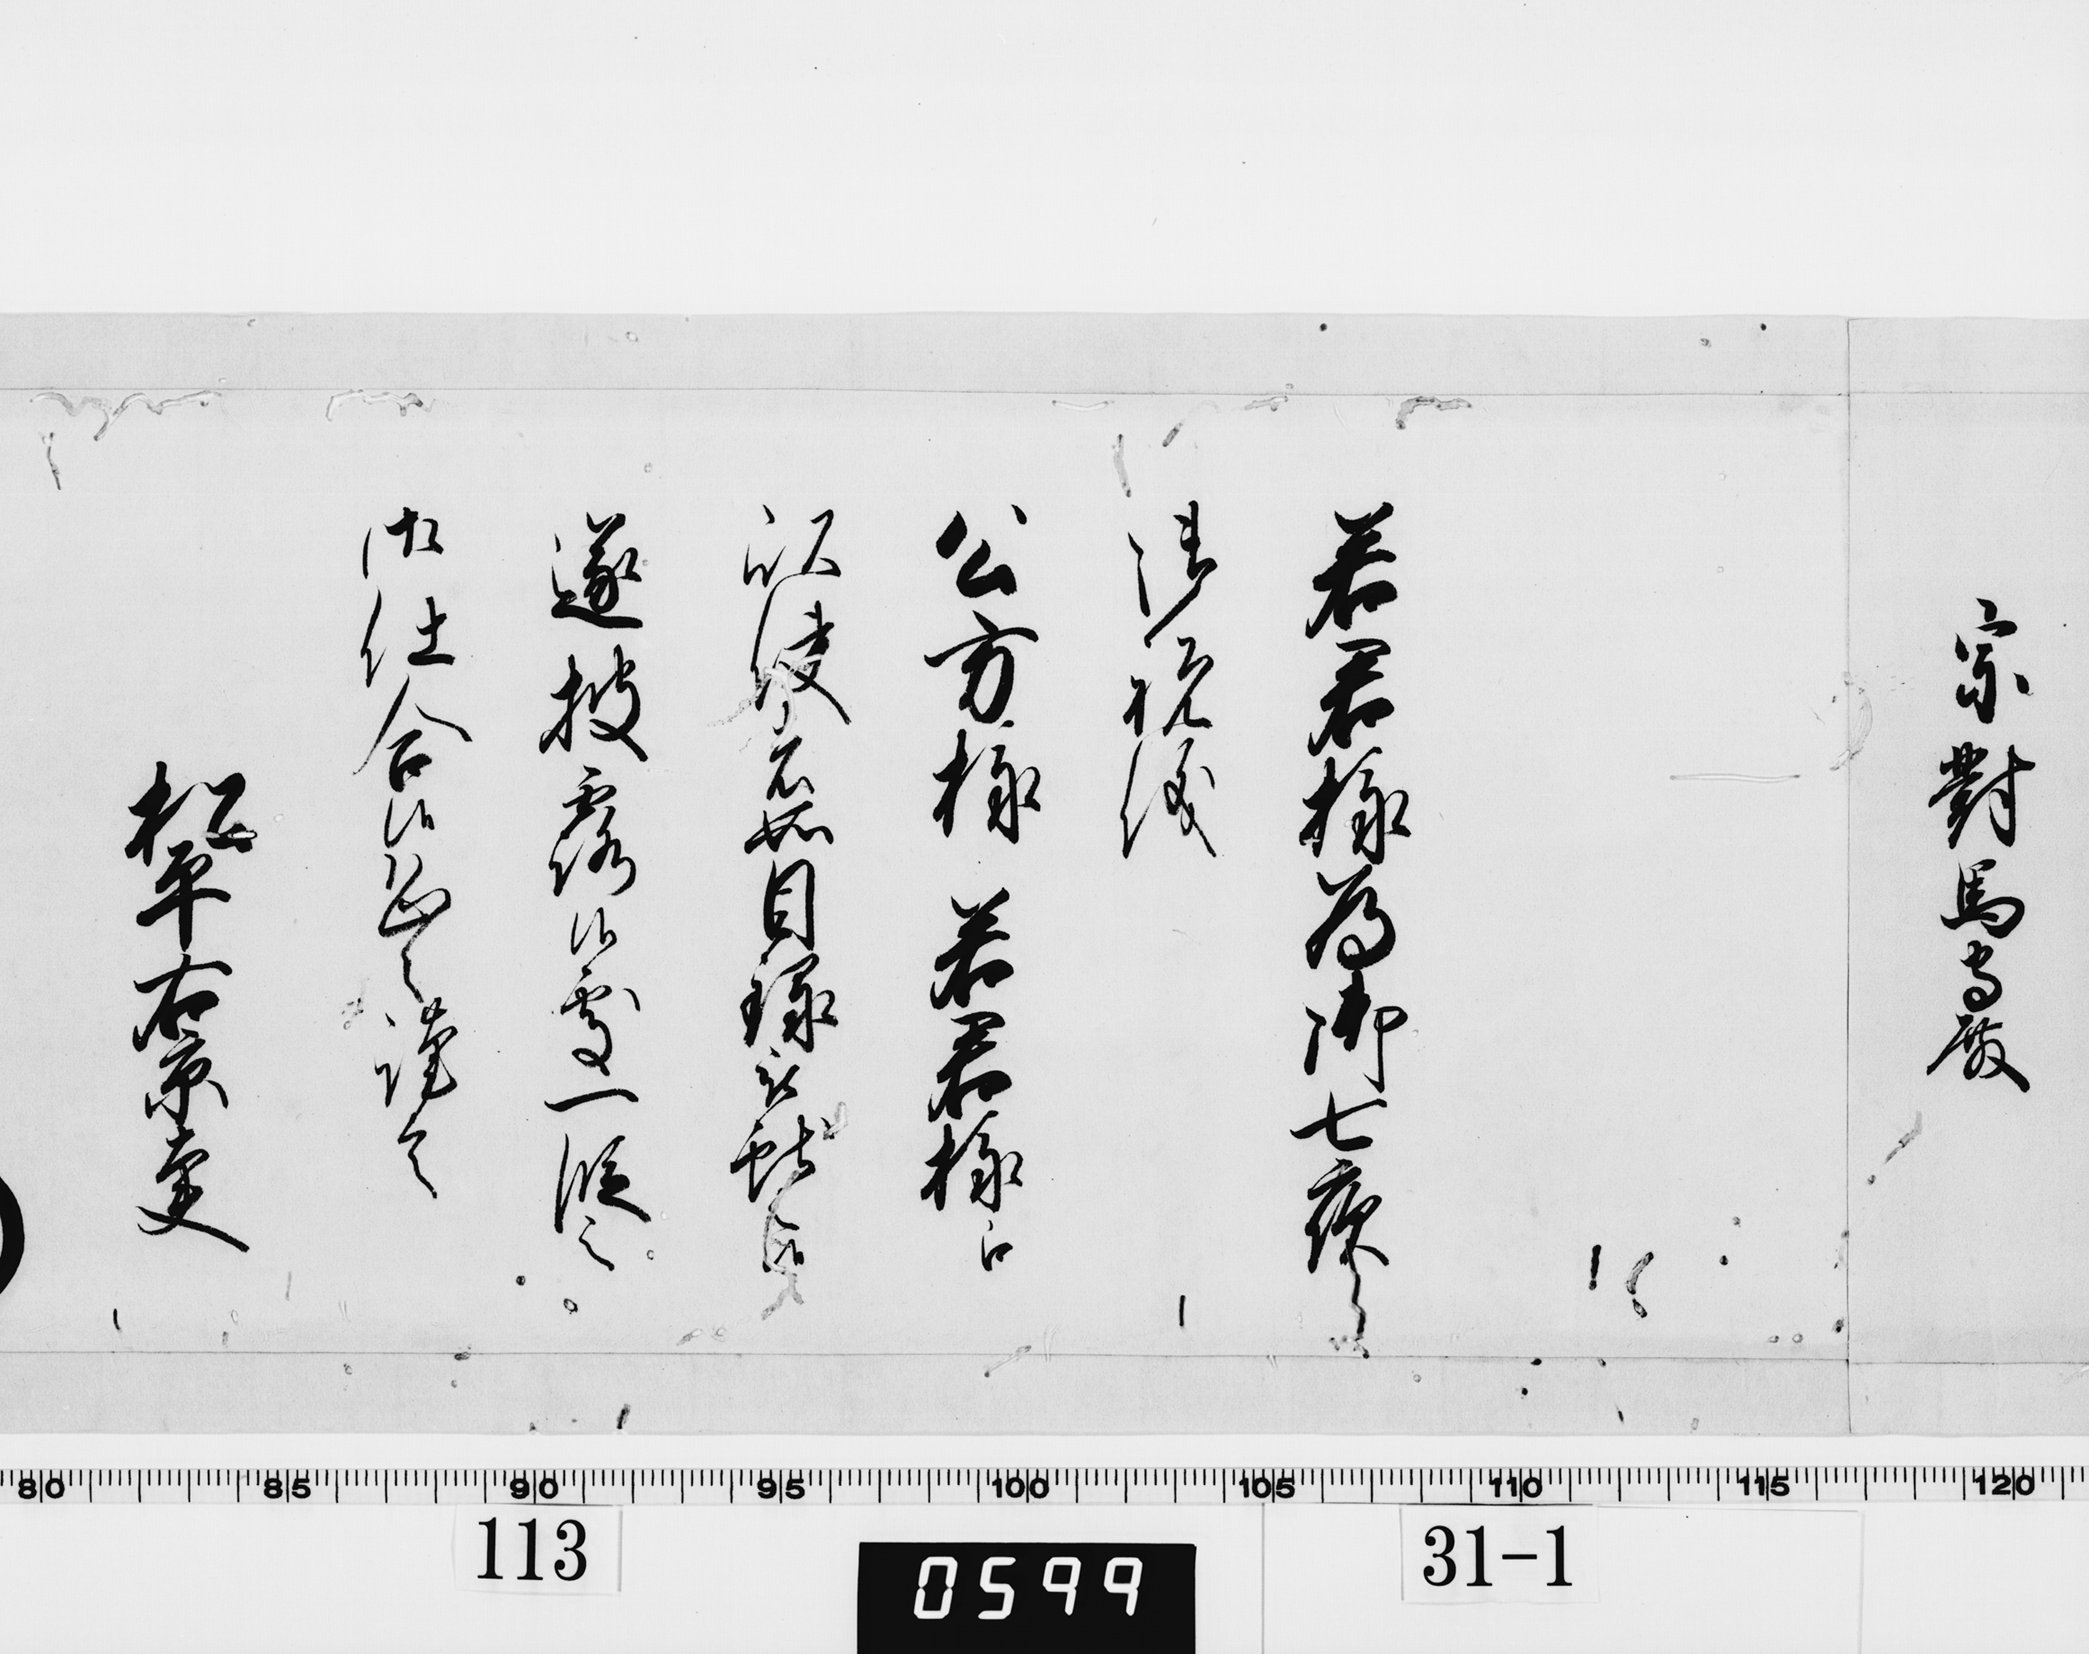 宗對馬守殿
若君様為御七夜之
御祝儀
公方様 若君様江
以使者如目録被獻之候
遂披露候處一段之
御仕合候恐々謹言
松平右京大夫
80 85 90 95 100 105 110 115 120
113
0599
31-1